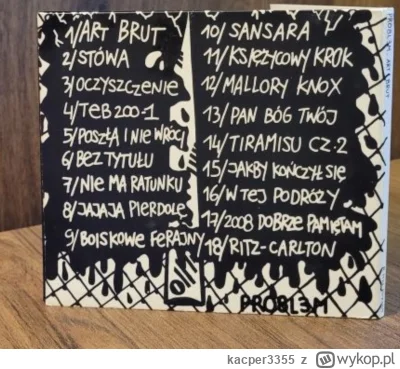 1/ART BRUT
2/STÓWA
3/OCZYSZCZENIE
4/TEB 200-1
5/POSZŁA I NIE WRÓCI
6/BEZ TYTUŁU
7/NIE MA RATUNKU
8/JAJAJA PIERDOLE
9/BOISKOWE FERAJNY
10/SANSARA
11/KSIĘŻYCOWY KROK
12/MALLORY KNOX
13/PAN BÓG TWÓJ
14/TIRAMISU CZ.2
15/JAKBY KOŃCZYŁ SIĘ
16/W TEJ PODRÓŻY
17/2008 DOBRZE PAMIĘTAM
18/RITZ-CARLTON
PROBL3M
kacper3355 z wykop.pl